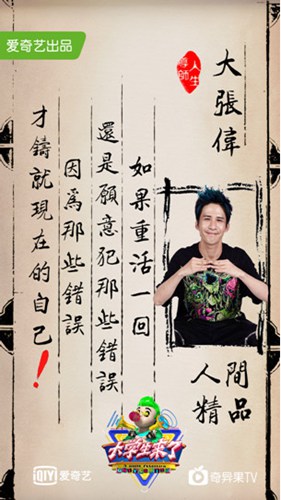 爱奇艺出品
人生
導師
大張偉
如果重活一回
還是願意犯那些錯誤
因爲那些錯誤
才鑄就現在的自己！
人間
精品
大學生來了
iQIYI 爱奇艺
奇异果TV